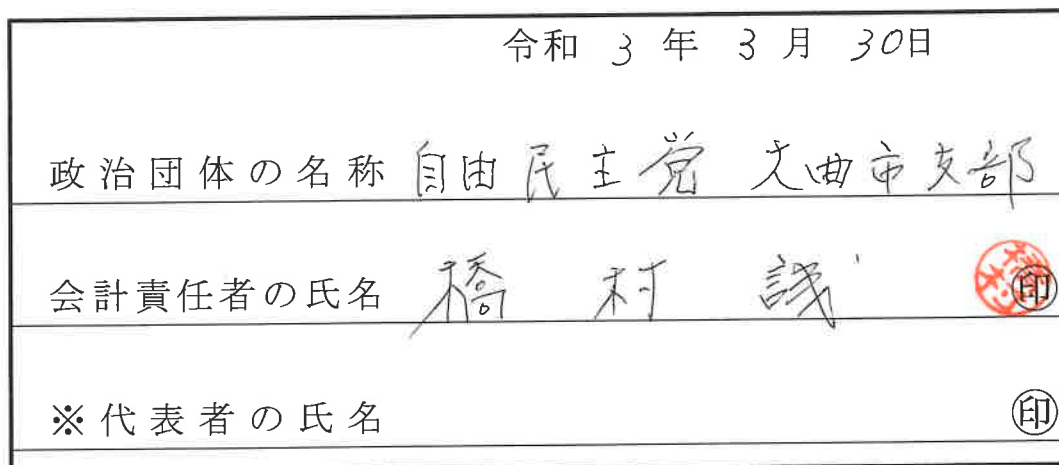 令和 3 年 3 月 30日
政治団体の名称 自由民主党 大曲市支部
会計責任者の氏名 橋村 誠 印
※代表者の氏名 印